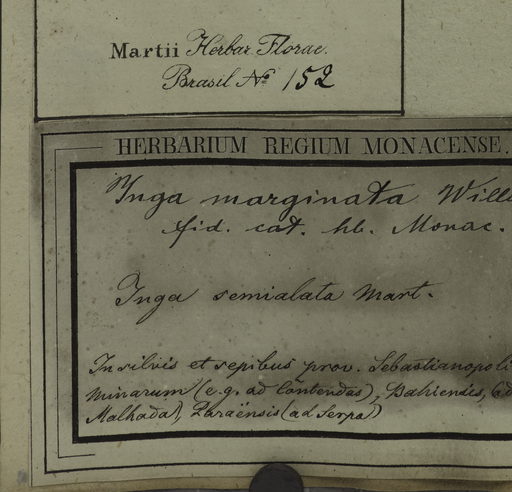 Martii Herbar. Florae.
Brasil No 152
HERBARIUM REGIUM MONACENSE.
Inga marginata Willd
fid. cat. hb. Monac.
Inga semialata Mart.
In silvis et sepibus prov. Sebastianopoli
Minarum (e.g. ad Contendas), Bahiensis, (ad
Malhada), Paraënsis (ad Serpa)